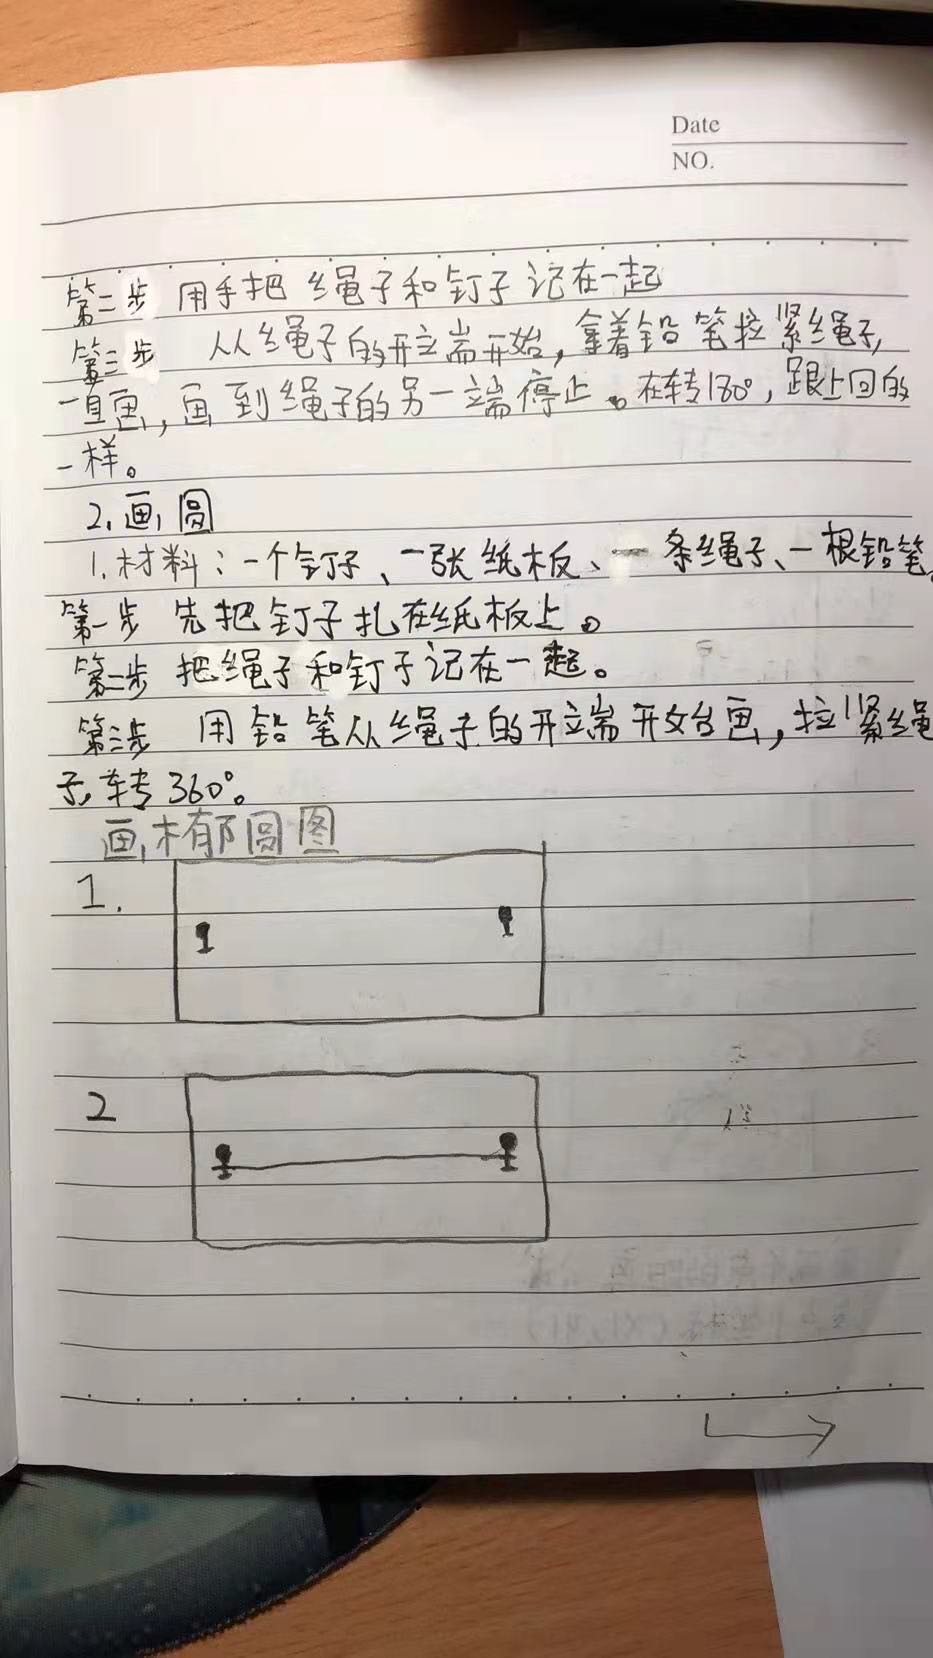 Date
NO.
第二步 用手把绳子和钉子记在一起
第三步 从绳子的开立端开始,拿着铅笔拉紧绳子,
一直画,画到绳子的另一端停止。在转180°,跟上回的
一样。
2.画圆
1.材料:一个钉子、一张纸板、一条绳子、一根铅笔。
第一步 先把钉子扎在纸板上。
第二步 把绳子和钉子记在一起。
第三步 用铅笔从绳子的开立端开始画,拉紧绳
子,转360°。
画椭圆图
1.
2